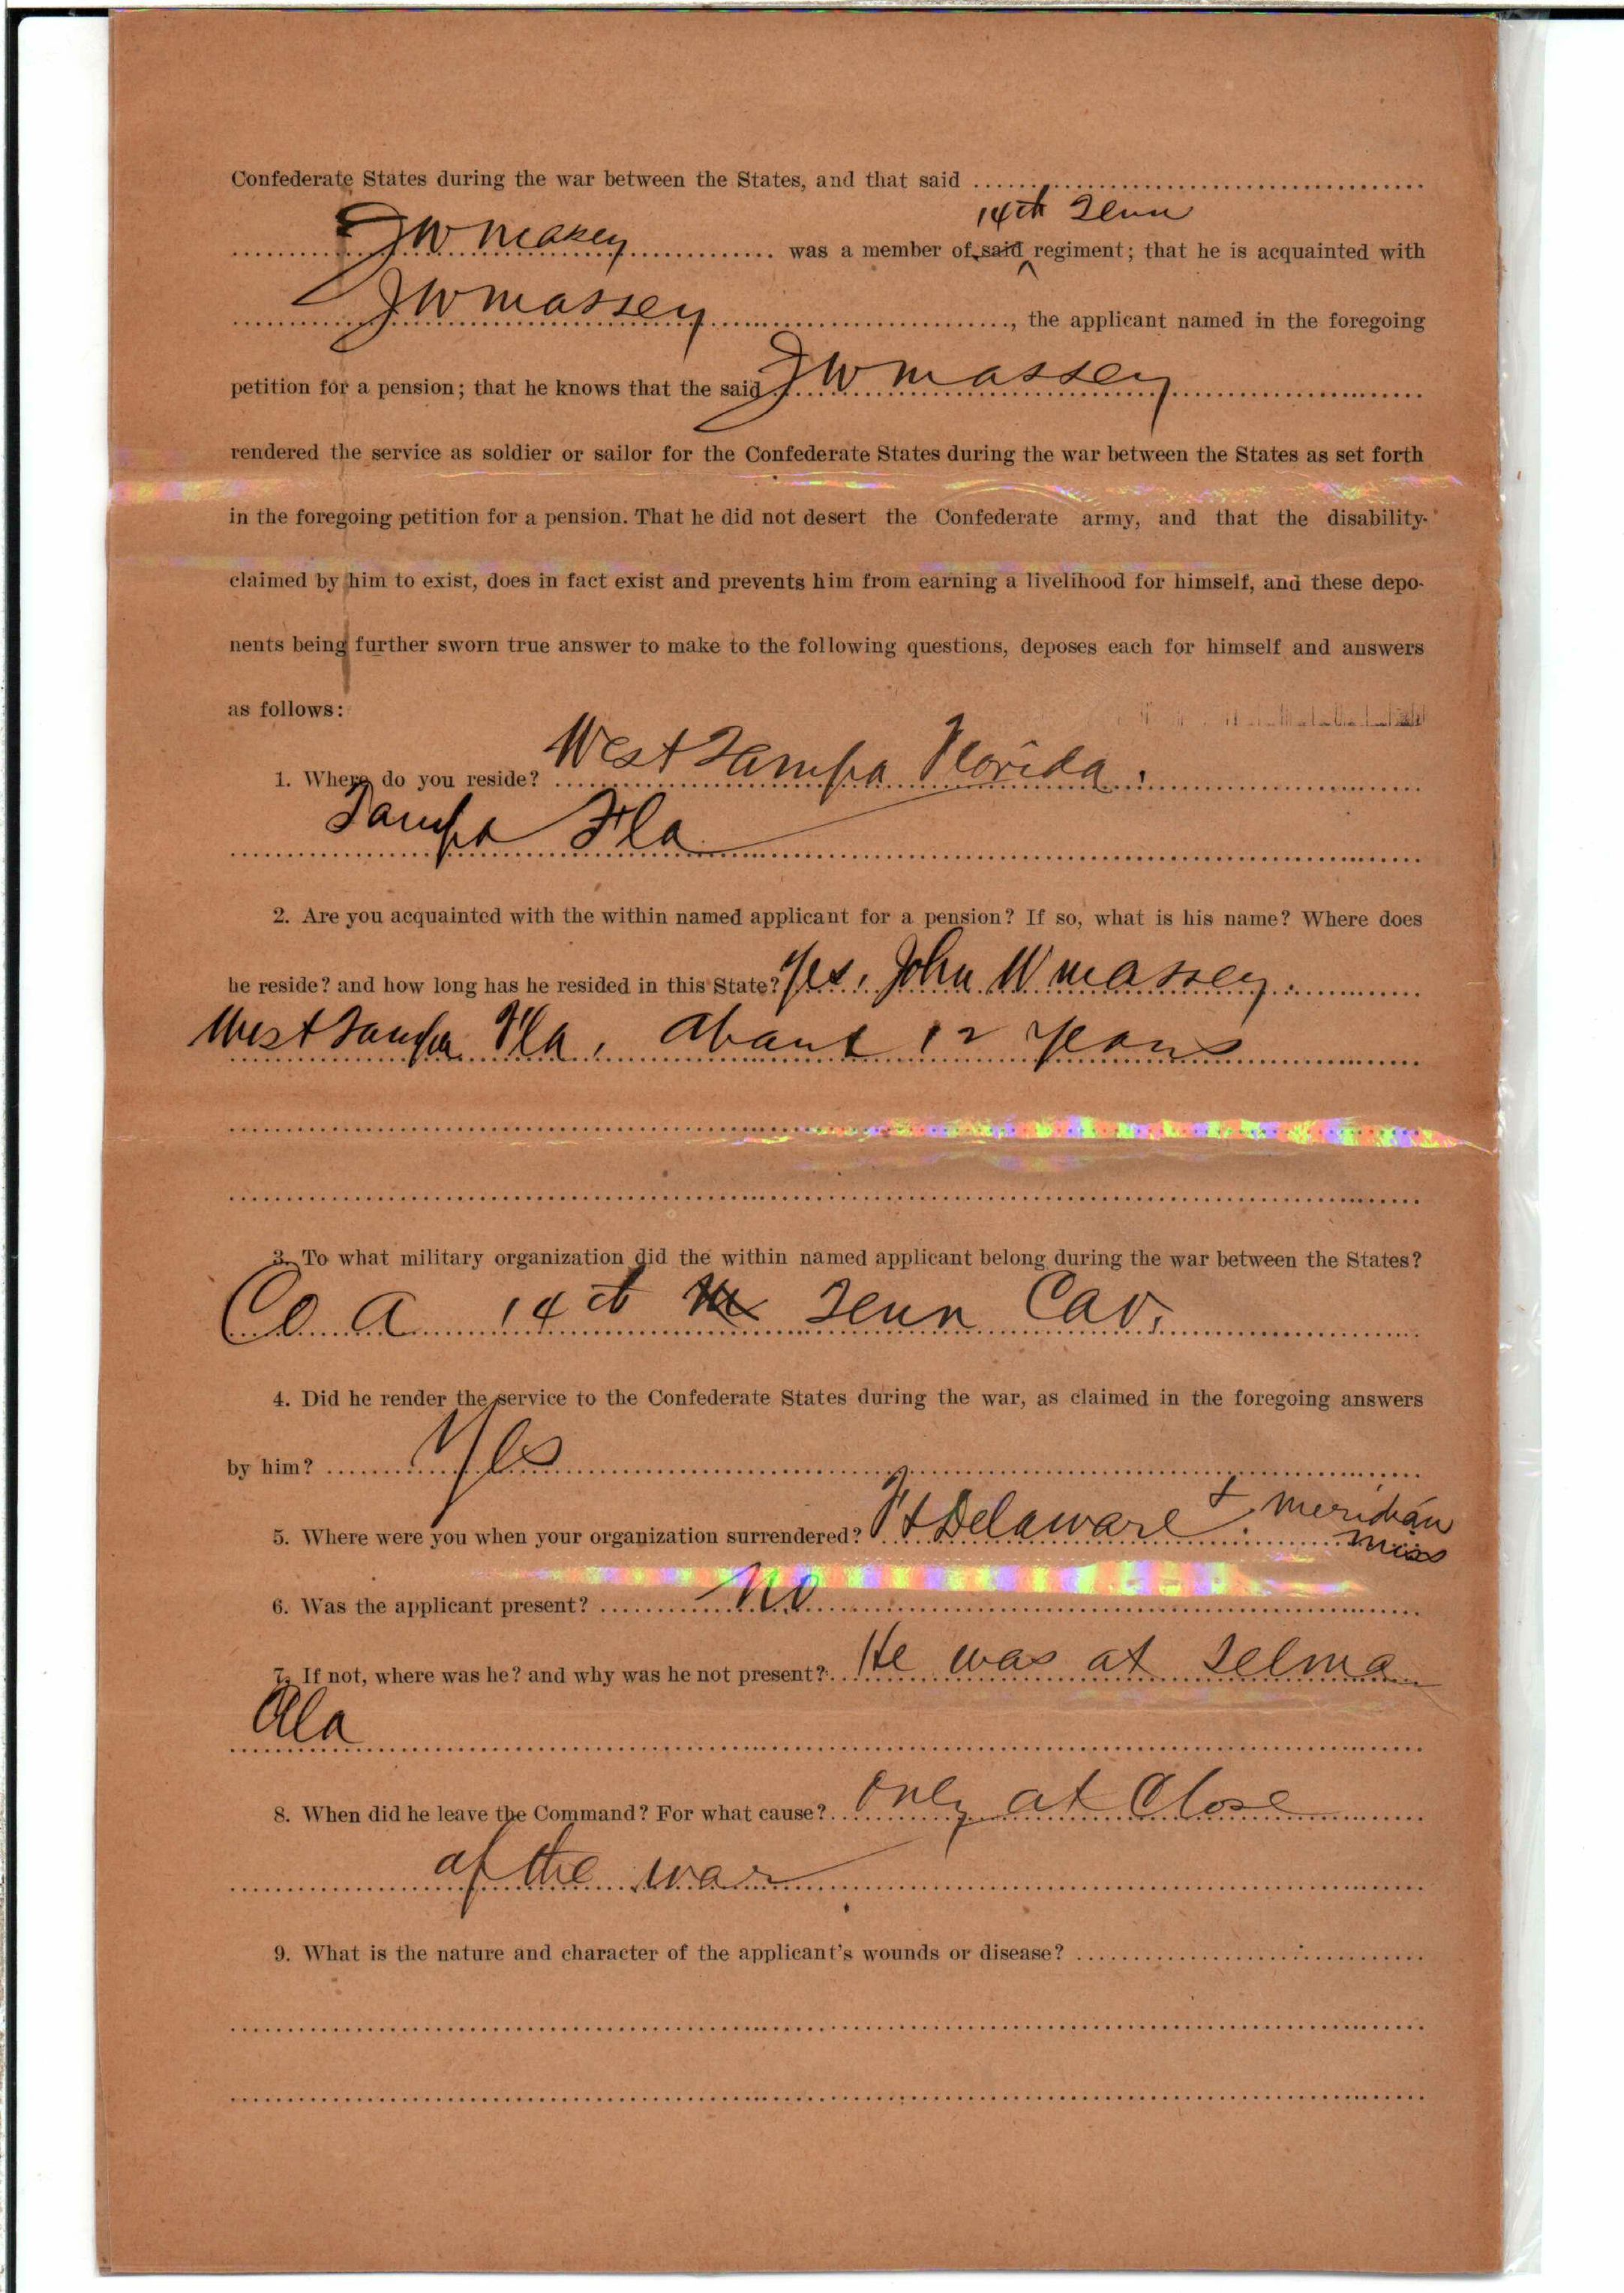 Confederate States during the war between the States, and that said
14th Tenn
J W Massey was a member of said regiment; that he is acquainted with
J W Massey, the applicant named in the foregoing
petition for a pension; that he knows that the said J W Massey
rendered the service as soldier or sailor for the Confederate States during the war between the States as set forth
in the foregoing petition for a pension. That he did not desert the Confederate army, and that the disability
claimed by him to exist, does in fact exist and prevents him from earning a livelihood for himself, and these depo-
nents being further sworn true answer to make to the following questions, deposes each for himself and answers
as follows:
1. Where do you reside? West Tampa Florida.
Tampa Fla
2. Are you acquainted with the within named applicant for a pension? If so, what is his name? Where does
he reside? and how long has he resided in this State? Yes, John W Massey.
West Tampa Fla, about 12 years
3. To what military organization did the within named applicant belong during the war between the States?
Co. A 14th Tenn Cav.
4. Did he render the service to the Confederate States during the war, as claimed in the foregoing answers
by him? Yes
5. Where were you when your organization surrendered? Ft Delaware & Meridian
Miss
6. Was the applicant present? No
7. If not, where was he? and why was he not present? He was at Selma
Ala
8. When did he leave the Command? For what cause? Only at Close
of the war
9. What is the nature and character of the applicant's wounds or disease?